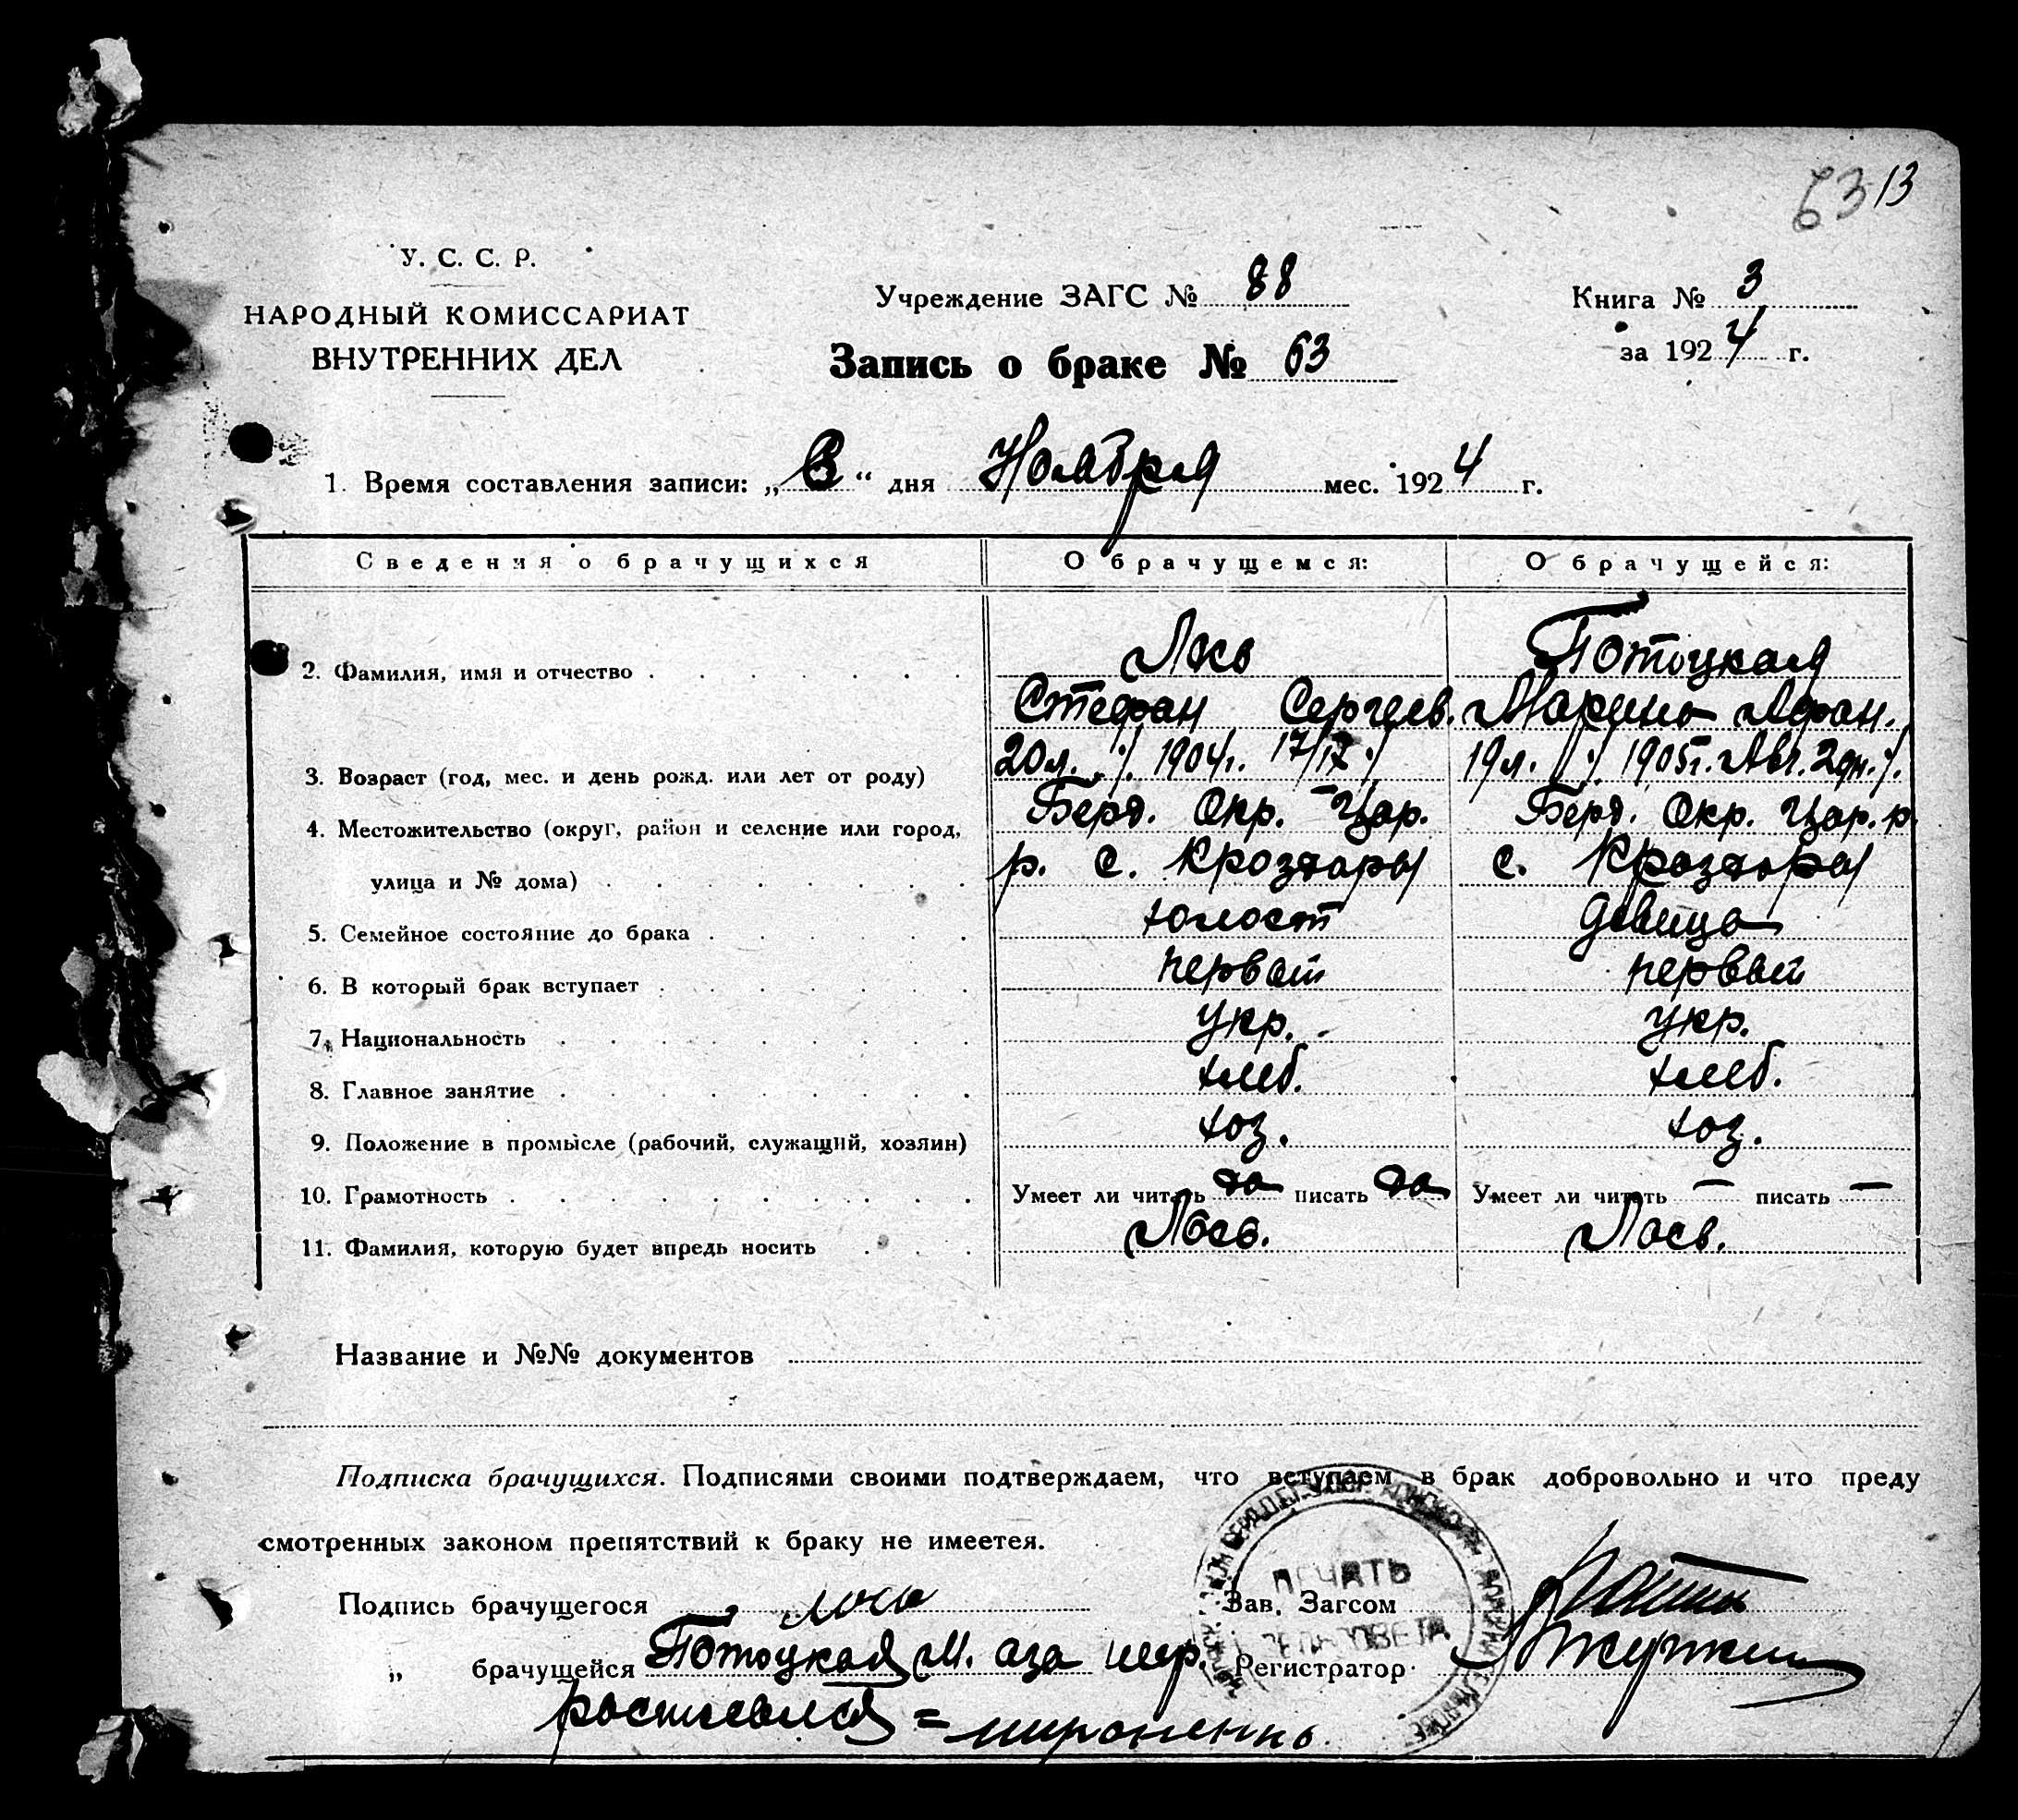 63 13
У. С. С. Р.
НАРОДНЫЙ КОМИССАРИАТ
ВНУТРЕННИХ ДЕЛ
Учреждение ЗАГС № 88
Книга № 3
за 1924 г.
Запись о браке № 63
1. Время составления записи: „ “ дня Ноября мес. 1924 г.
Сведения о брачущихся О брачущемся: О брачущейся:
2. Фамилия, имя и отчество Лось Потоцкая
Стефан Сергеев. Марина Афан.
3. Возраст (год, мес. и день рожд. или лет от роду) 20 л. 1904 г. 19 л. 1905 г. Авг. 2 дн.
4. Местожительство (округ, район и селение или город, Берд. Окр. Цар. Берд. Окр. Цар. р.
улица и № дома) р. с. с.
5. Семейное состояние до брака холост девица
6. В который брак вступает первый первый
7. Национальность Укр. Укр.
8. Главное занятие хлеб. хлеб.
9. Положение в промысле (рабочий, служащий, хозяин) хоз. хоз.
10. Грамотность Умеет ли читать да писать да Умеет ли читать — писать —
11. Фамилия, которую будет впредь носить Лось. Лось.
Название и №№ документов
Подписка брачущихся. Подписями своими подтверждаем, что вступаем в брак добровольно и что преду
смотренных законом препятствий к браку не имеетея.
Подпись брачущегося Лось Зав. Загсом
„ брачущейся Потоцкая М. аза Регистратор
ПЕЧАТЬ
СЕЛЬСОВЕТА